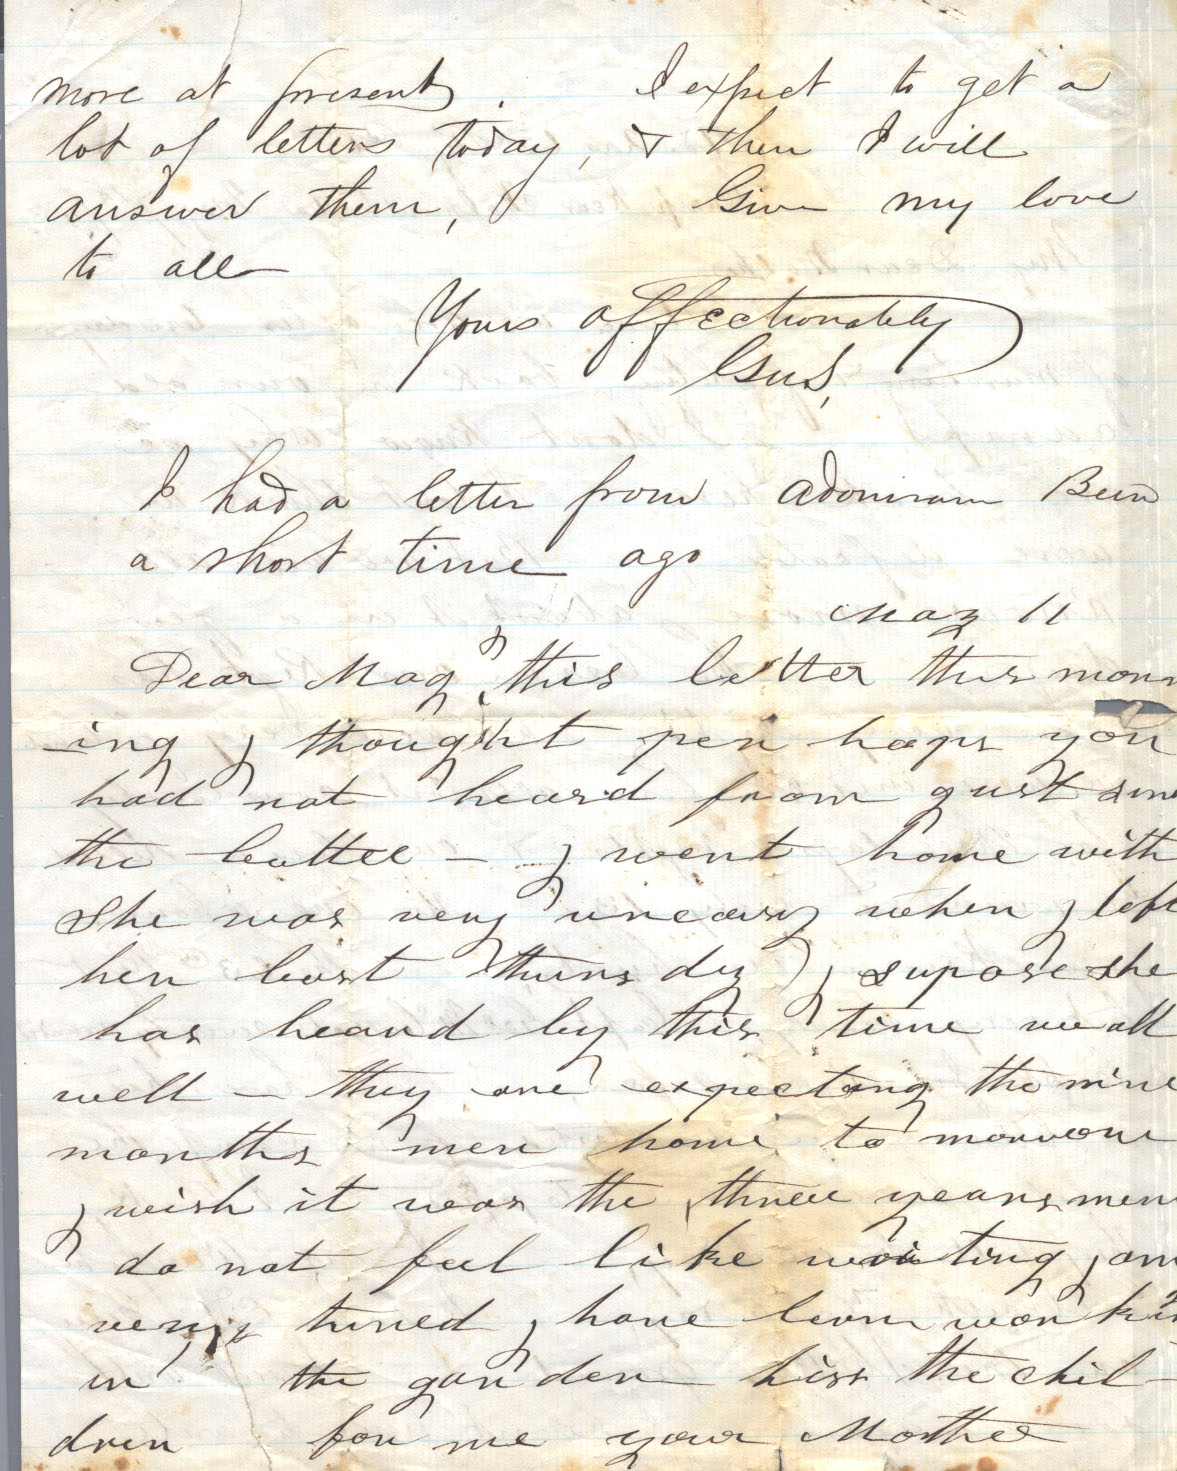 more at present. I expect to get a
lot of letters today, & then I will
answer them, Give my love
to all
Yours affectionately
Gus,
I had a letter from Adoniram
a short time ago
May 11
Dear Mag I this letter this morn
ing I thought per haps you
had not heard from gust sinc
the battel - I went home with
She was very uneaisy when I left
her last thurs day I supose she
has heard by this time we all
well - they are expectang the nine
months men home to morrow
I wish it was the three years men
do not feel like writing I am
very tired I have been workin
in the garden kiss the chil-
dren for me your Mother